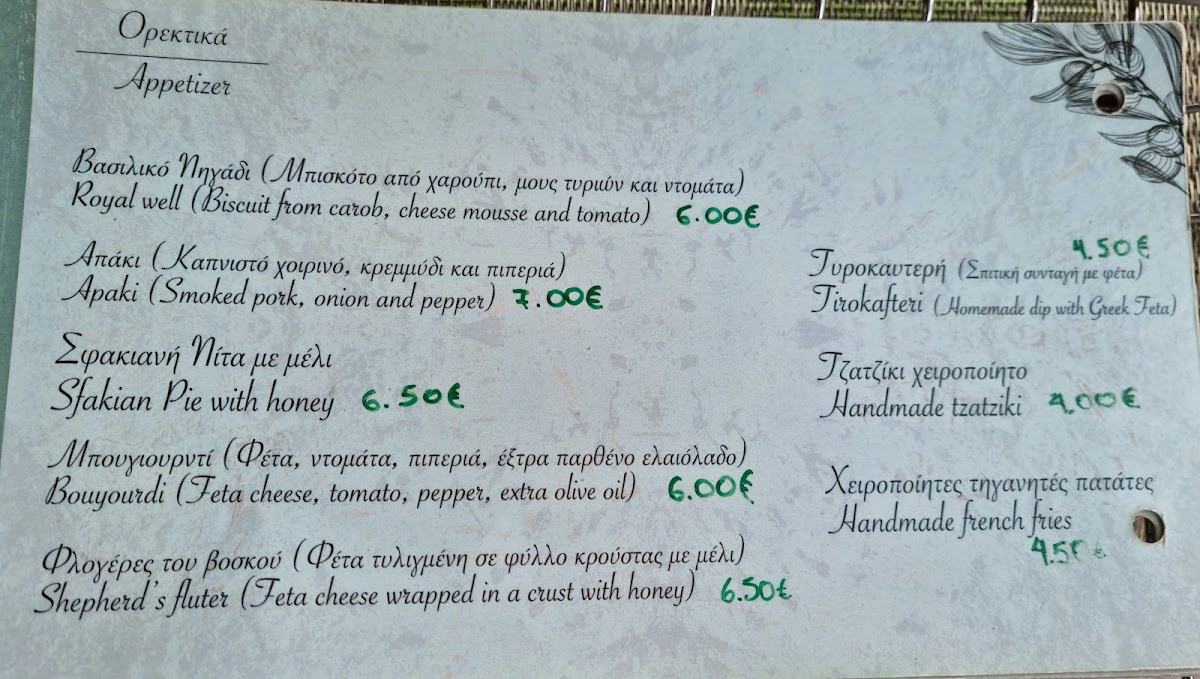 Ορεκτικά
Appetizer
Βασιλικό Πηγάδι (Μπισκότο από χαρούπι, μους τυριών και ντομάτα)
Royal well (Biscuit from carob, cheese mousse and tomato) 6.00€
Απάκι (Καπνιστό χοιρινό, κρεμμύδι και πιπεριά)
Apaki (Smoked pork, onion and pepper) 7.00€
Σφακιανή Πίτα με μέλι
Sfakian Pie with honey 6.50€
Μπουγιουρντί (Φέτα, ντομάτα, πιπεριά, έξτρα παρθένο ελαιόλαδο)
Bouyourdi (Feta cheese, tomato, pepper, extra olive oil) 6.00€
Φλογέρες του βοσκού (Φέτα τυλιγμένη σε φύλλο κρούστας με μέλι)
Shepherd's fluter (Feta cheese wrapped in a crust with honey) 6.50€
4.50€
Τυροκαυτερή (Σπιτική συνταγή με φέτα)
Tirokafteri (Homemade dip with Greek Feta)
Τζατζίκι χειροποίητο
Handmade tzatziki 4.00€
Χειροποίητες τηγανητές πατάτες
Handmade french fries
4.50€